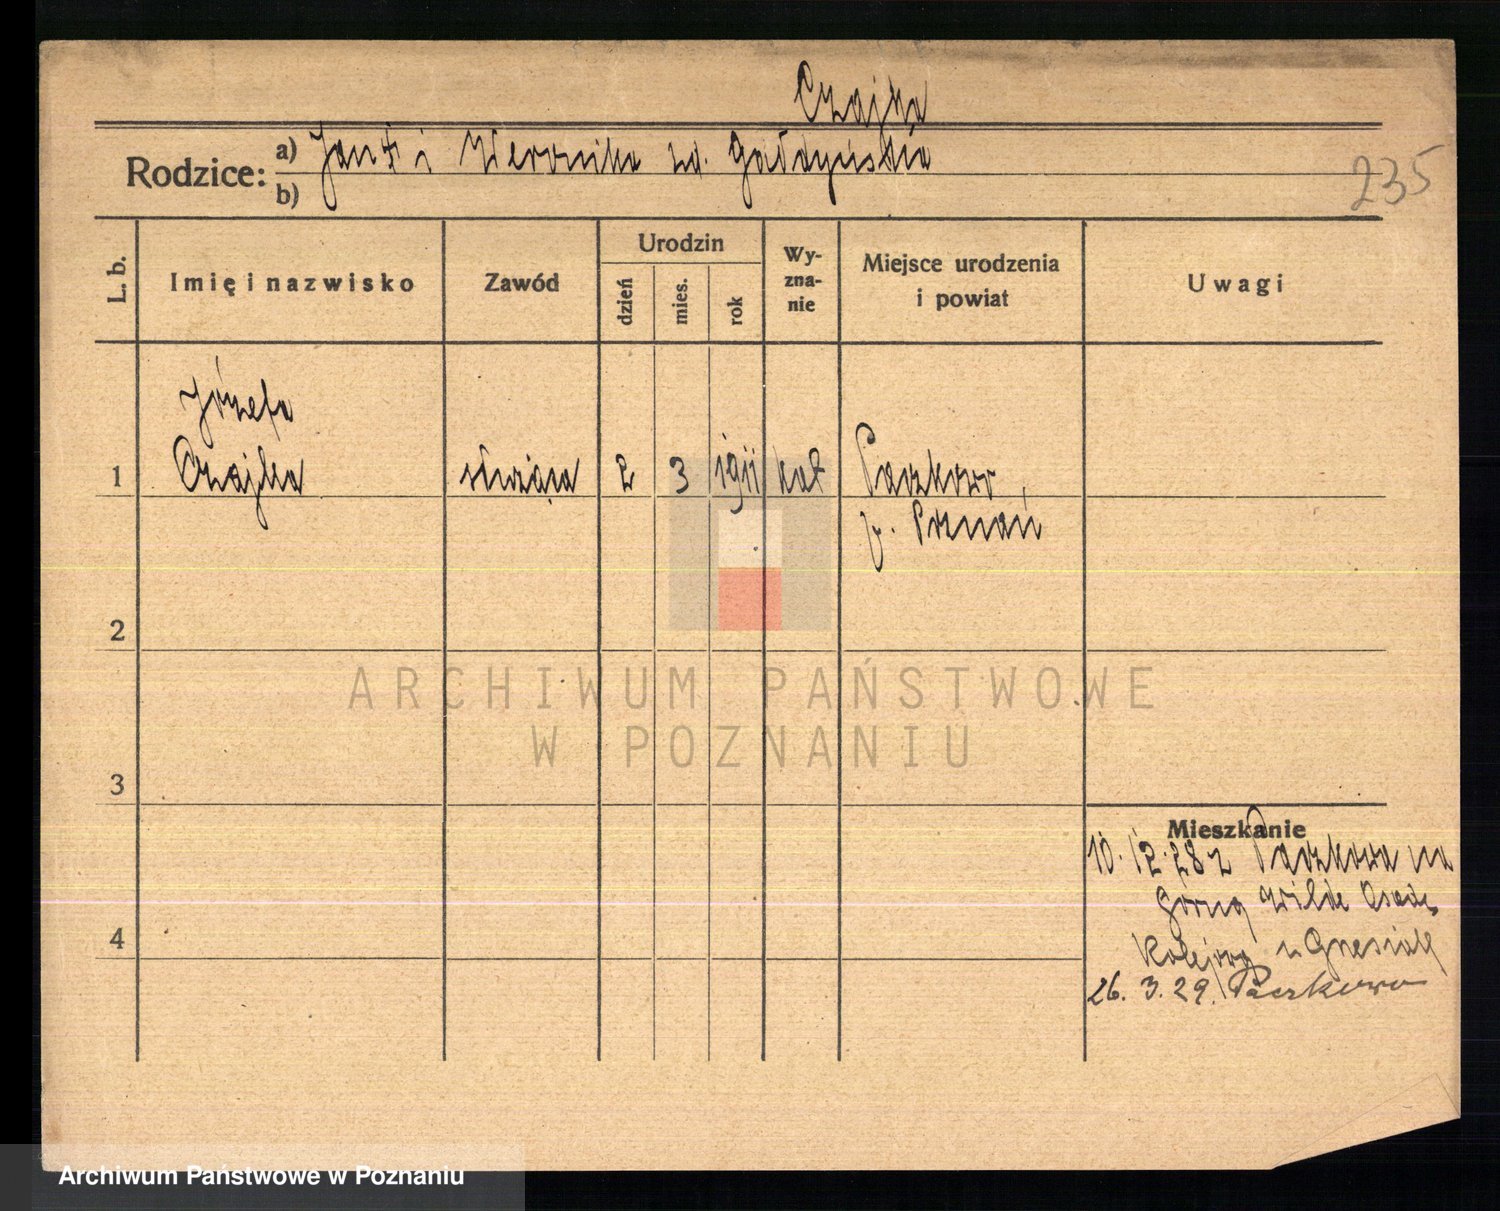 Czajka
Rodzice: a) Jan † i Weronika zd. Gałdyńska
b)
235
L. b. Imię i nazwisko Zawód Urodzin dzień mies. rok Wyznanie Miejsce urodzenia i powiat Uwagi
Józefa
1 Czajka służąca 2 3 1911 kat Paczkowo,
p. Poznań
2
3
4
Mieszkanie
10.12.28 z Paczkowa na
Górną Wildę
Kolejową u
26.3.29. Paczkowo
ARCHIWUM PAŃSTWOWE
W POZNANIU
Archiwum Państwowe w Poznaniu